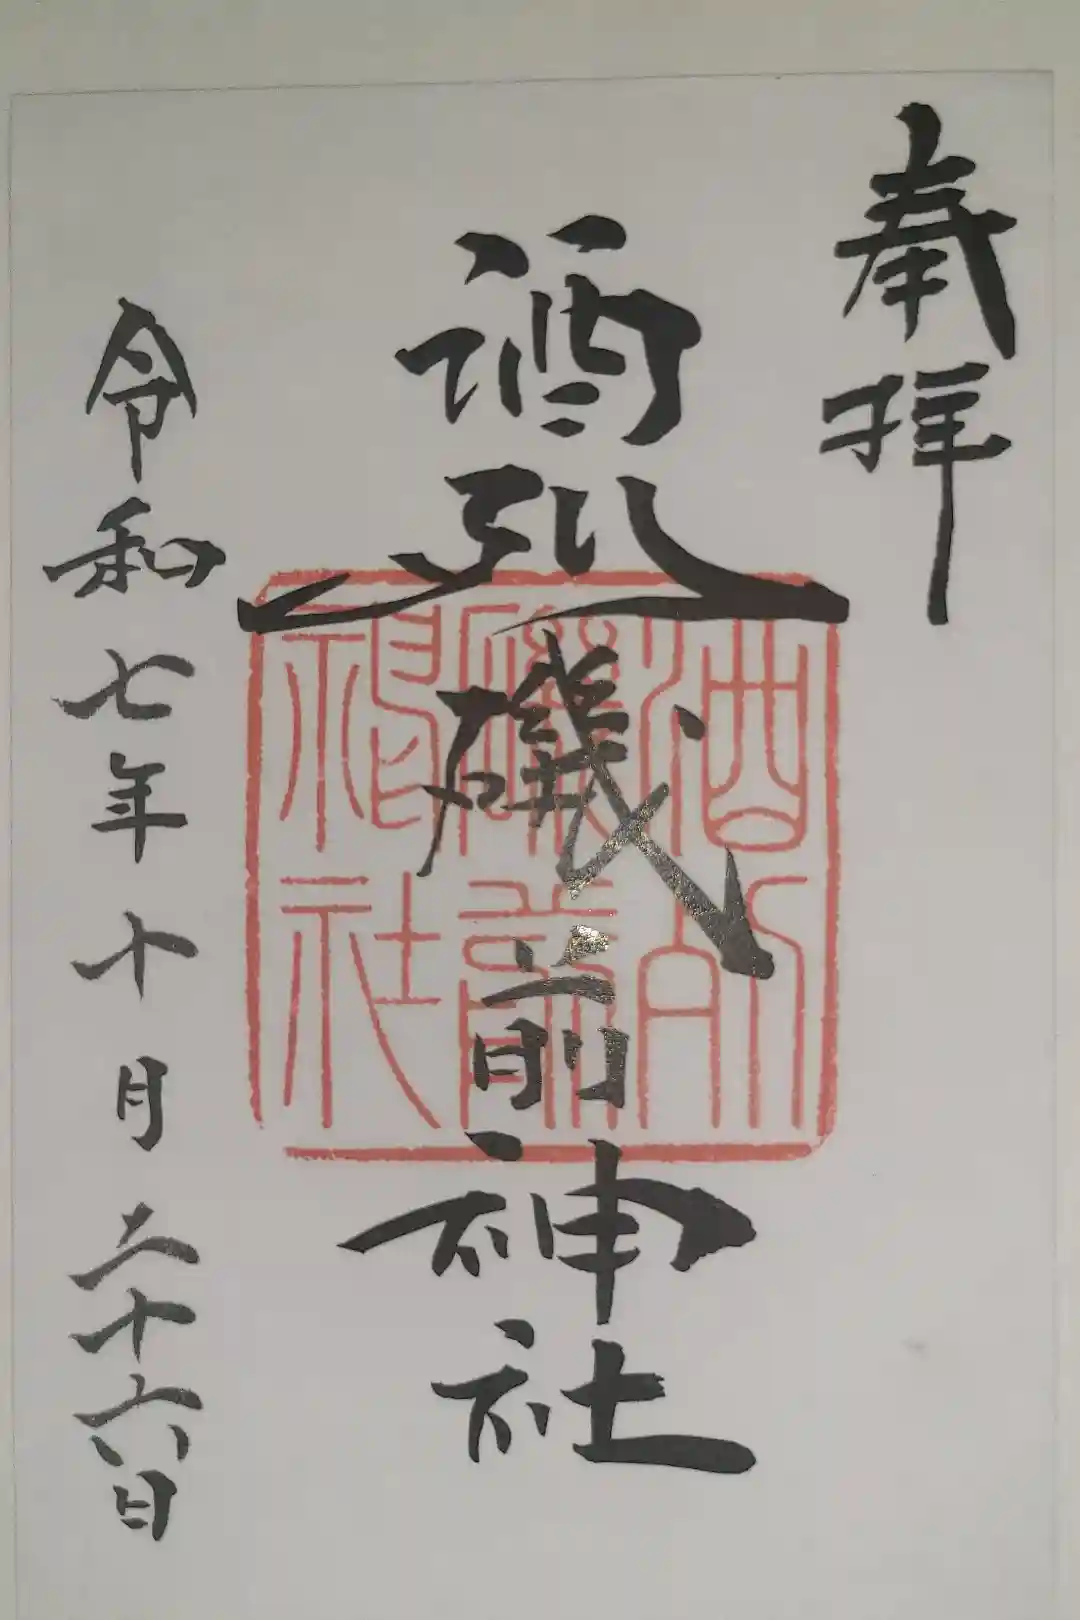 奉拝
酒列磯前神社
令和七年十月二十六日
酒列
磯前
神社